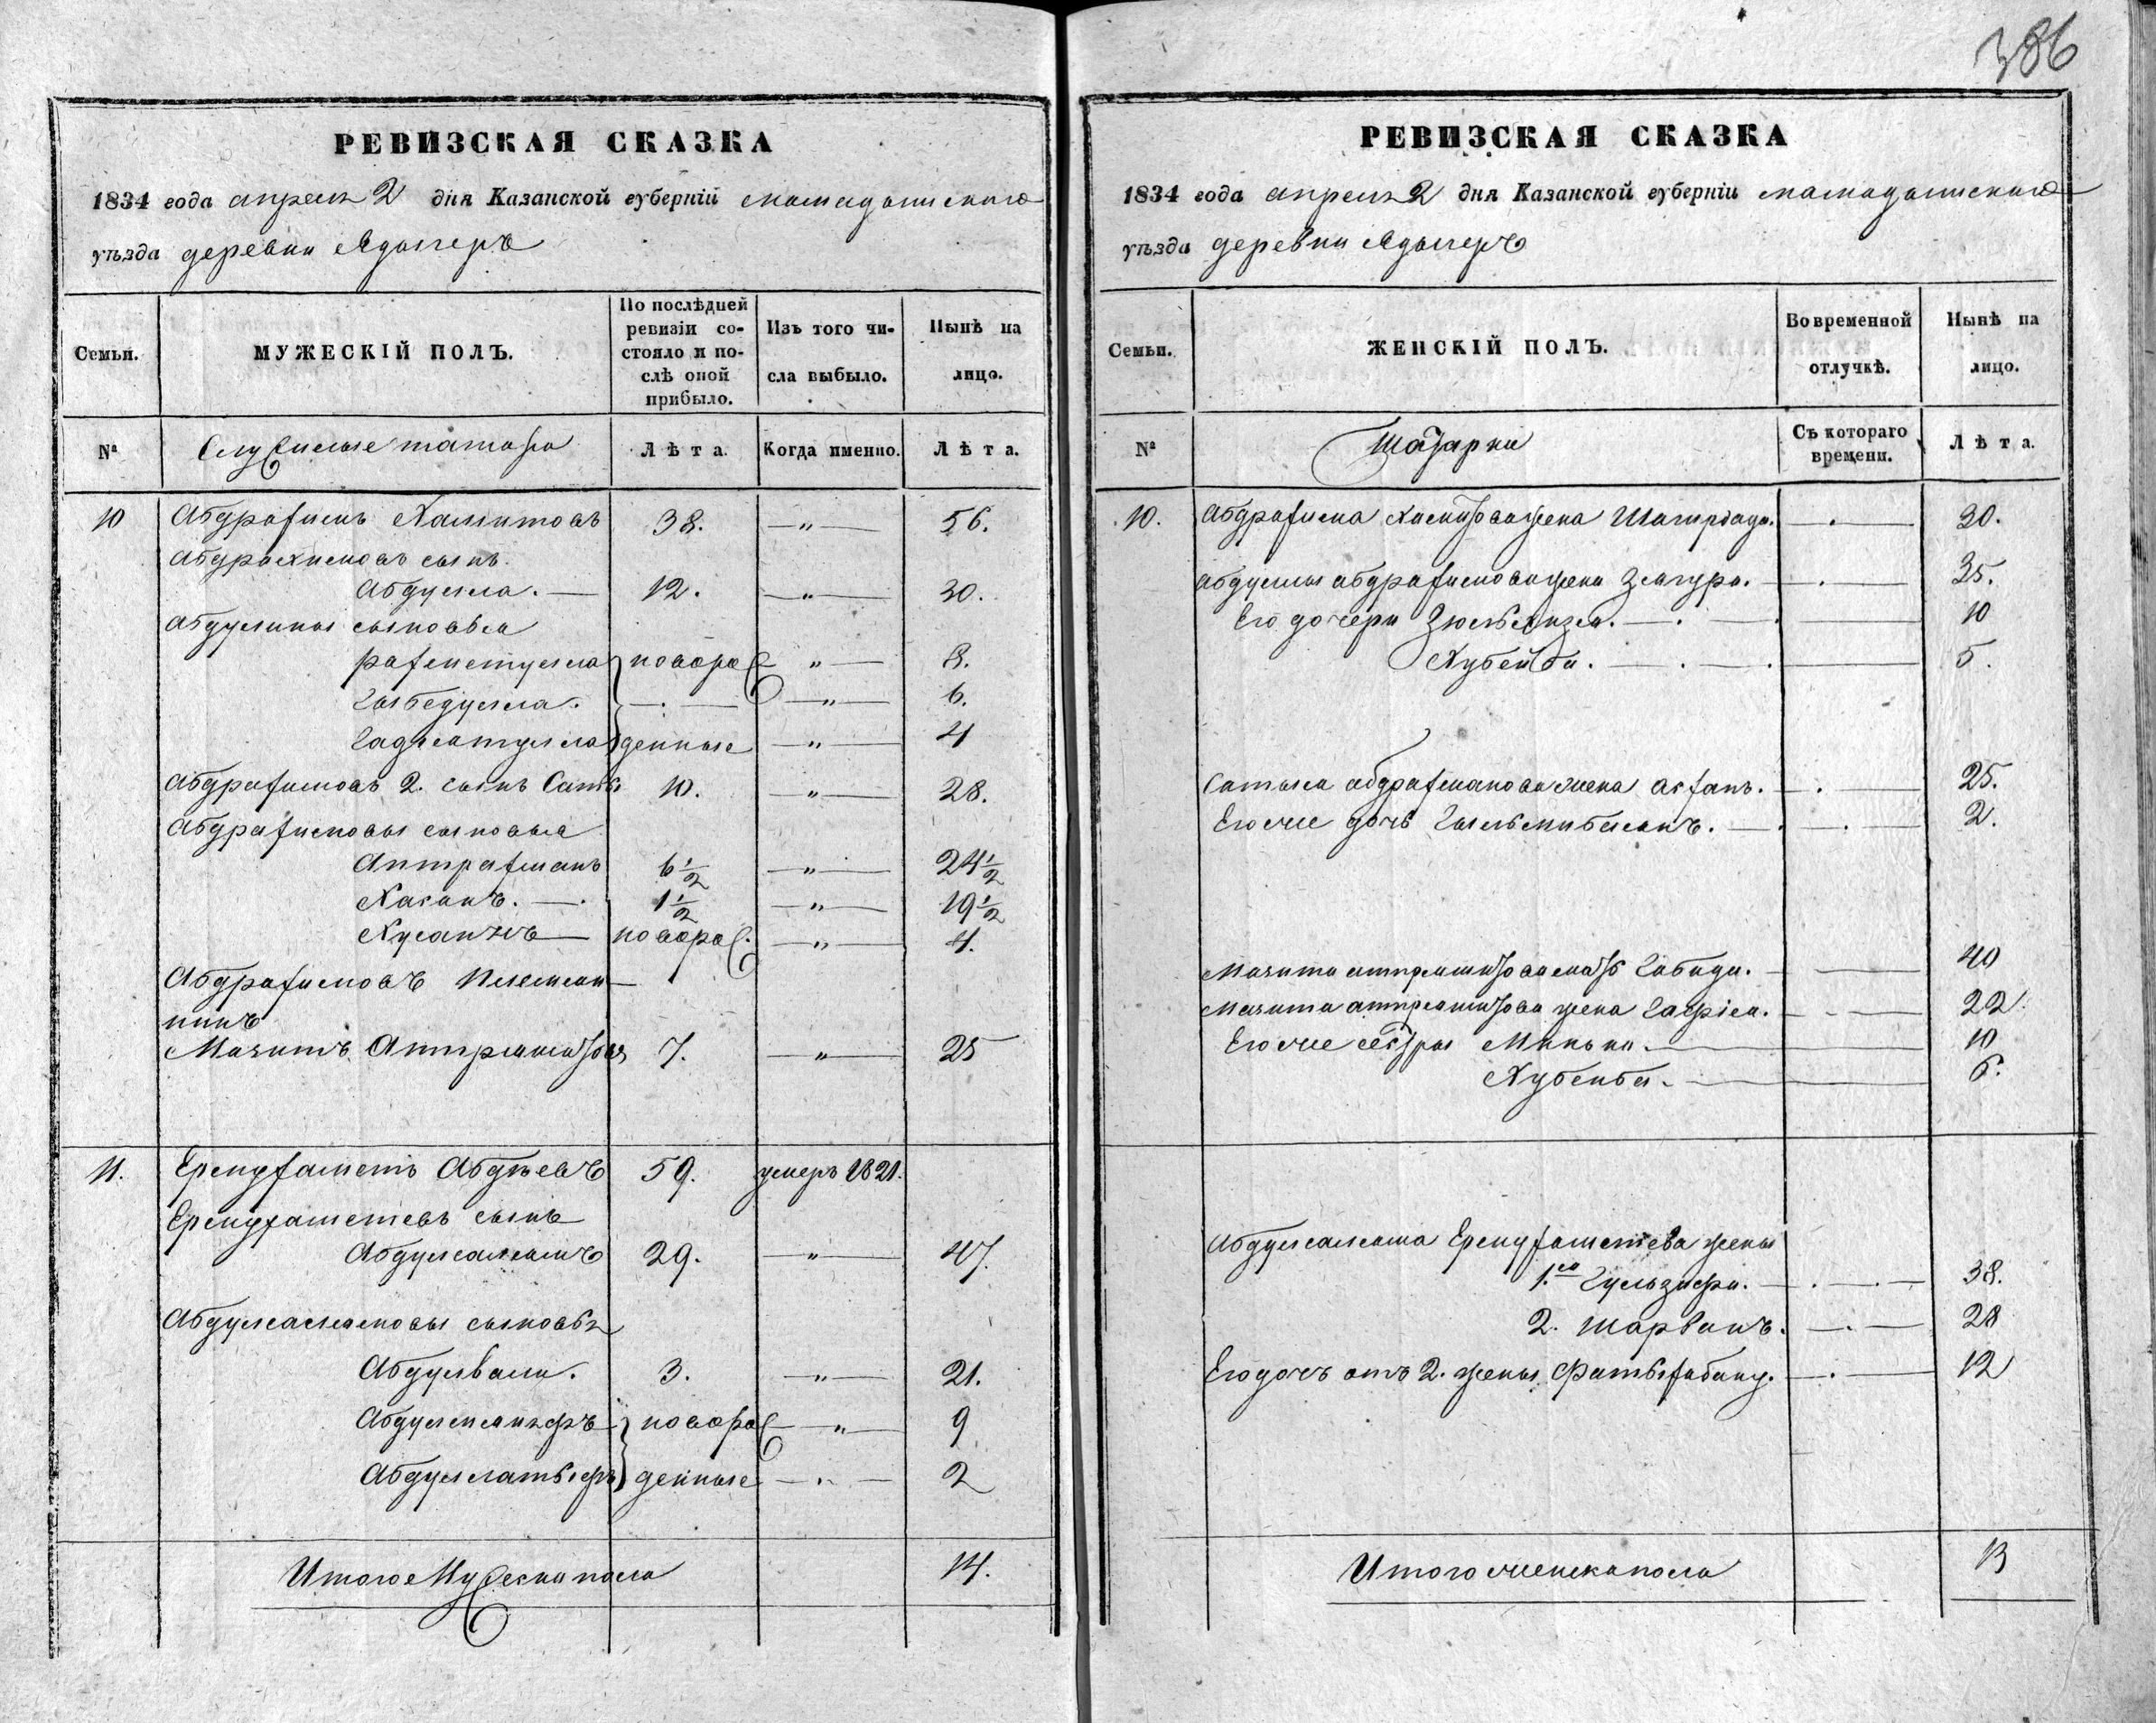 386
РЕВИЗСКАЯ СКАЗКА
1834 года апреля 2 дня Казанской губерніи мамадышскаго
уѣзда деревни Адыгеръ
Семьи.
МУЖЕСКІЙ ПОЛЪ.
По послѣдней ревизіи со-
стояло и по-
слѣ оной
прибыло.
Изъ того чи-
сла выбыло.
Нынѣ на
лицо.
№
Служилые татара
Лѣта.
Когда именно.
Лѣта.
10 Абдрафимъ Хамитовъ 38. —"— 56.
Абдрахимовъ сынъ.
Абдулла. — 12. —"— 30.
Абдулины сыновья
рафметулла новорож —"— 8.
Гыбедулла. —.— —"— 6.
Гадиатулла денные —"— 4
Абдрафимовъ 2. сынъ 10. —"— 28.
Абдрафимовы сыновья
Аптрафманъ 6 1/2 —"— 24 1/2
Хасанъ. —. 1 1/2 —"— 19 1/2
Хусаинъ — новорож. —"— 4.
Абдрафимовъ племян-
никъ
Мачитъ 7. —"— 25
11. Ермухаметь Абдѣевъ 59. умеръ 1821.
Ермухаметевъ сынъ
Абдулсалямъ 29. —"— 47.
Абдулсалямовы сыновья
Абдулвали. 3. —"— 21.
новорож —"— 9
Абдуллатыфъ денные —"— 2
Итого Мужеска пола 14.
РЕВИЗСКАЯ СКАЗКА
1834 года апреля 2 дня Казанской губерніи мамадышскаго
уѣзда деревни Адыгеръ
Семьи.
ЖЕНСКІЙ ПОЛЪ.
Во временной
отлучкѣ.
Нынѣ на
лицо.
№
Татарки
Съ котораго
времени.
Лѣта.
10. Абдрафима Хамитова жена —.— 30.
Абдуллы абдрафимова жена —.— 35.
Его дочери 10
Хубейба. —.—. 5.
абдрафманова жена —.— 25.
Его же дочь —.—.— 2.
Мачита мать Габида. — 40
Мачита жена —-— 22.
Его же сестры 10
Хубейба. — 6.
Абдулсаляма Ермухаметева жены
1.ая Гульзифа. —.—.— 38.
2. Шарванъ. —.— 28
Его дочь отъ 2. жены Фатыхабану. —.— 12
Итого женска пола 13